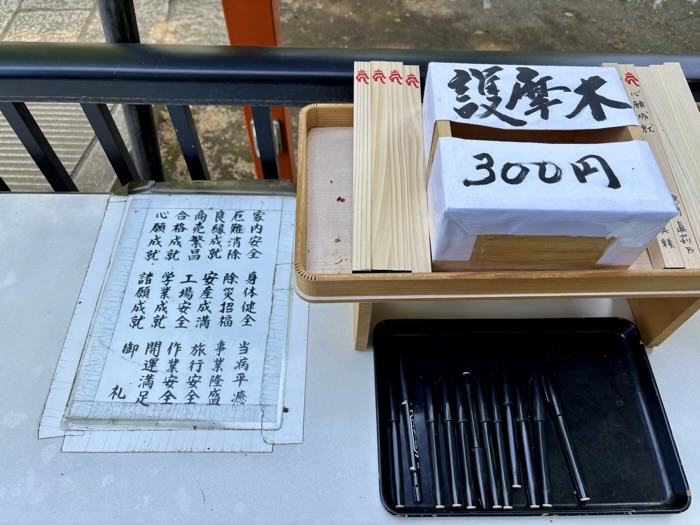 護摩木
300円
家内安全 身体健全 当病平癒
厄難消除 除災招福 事業隆盛
良縁成就 安産成満 旅行安全
商売繁昌 工場安全 作業安全
合格成就 学業成就 開運満足
心願成就 諸願成就 御礼
心願成就